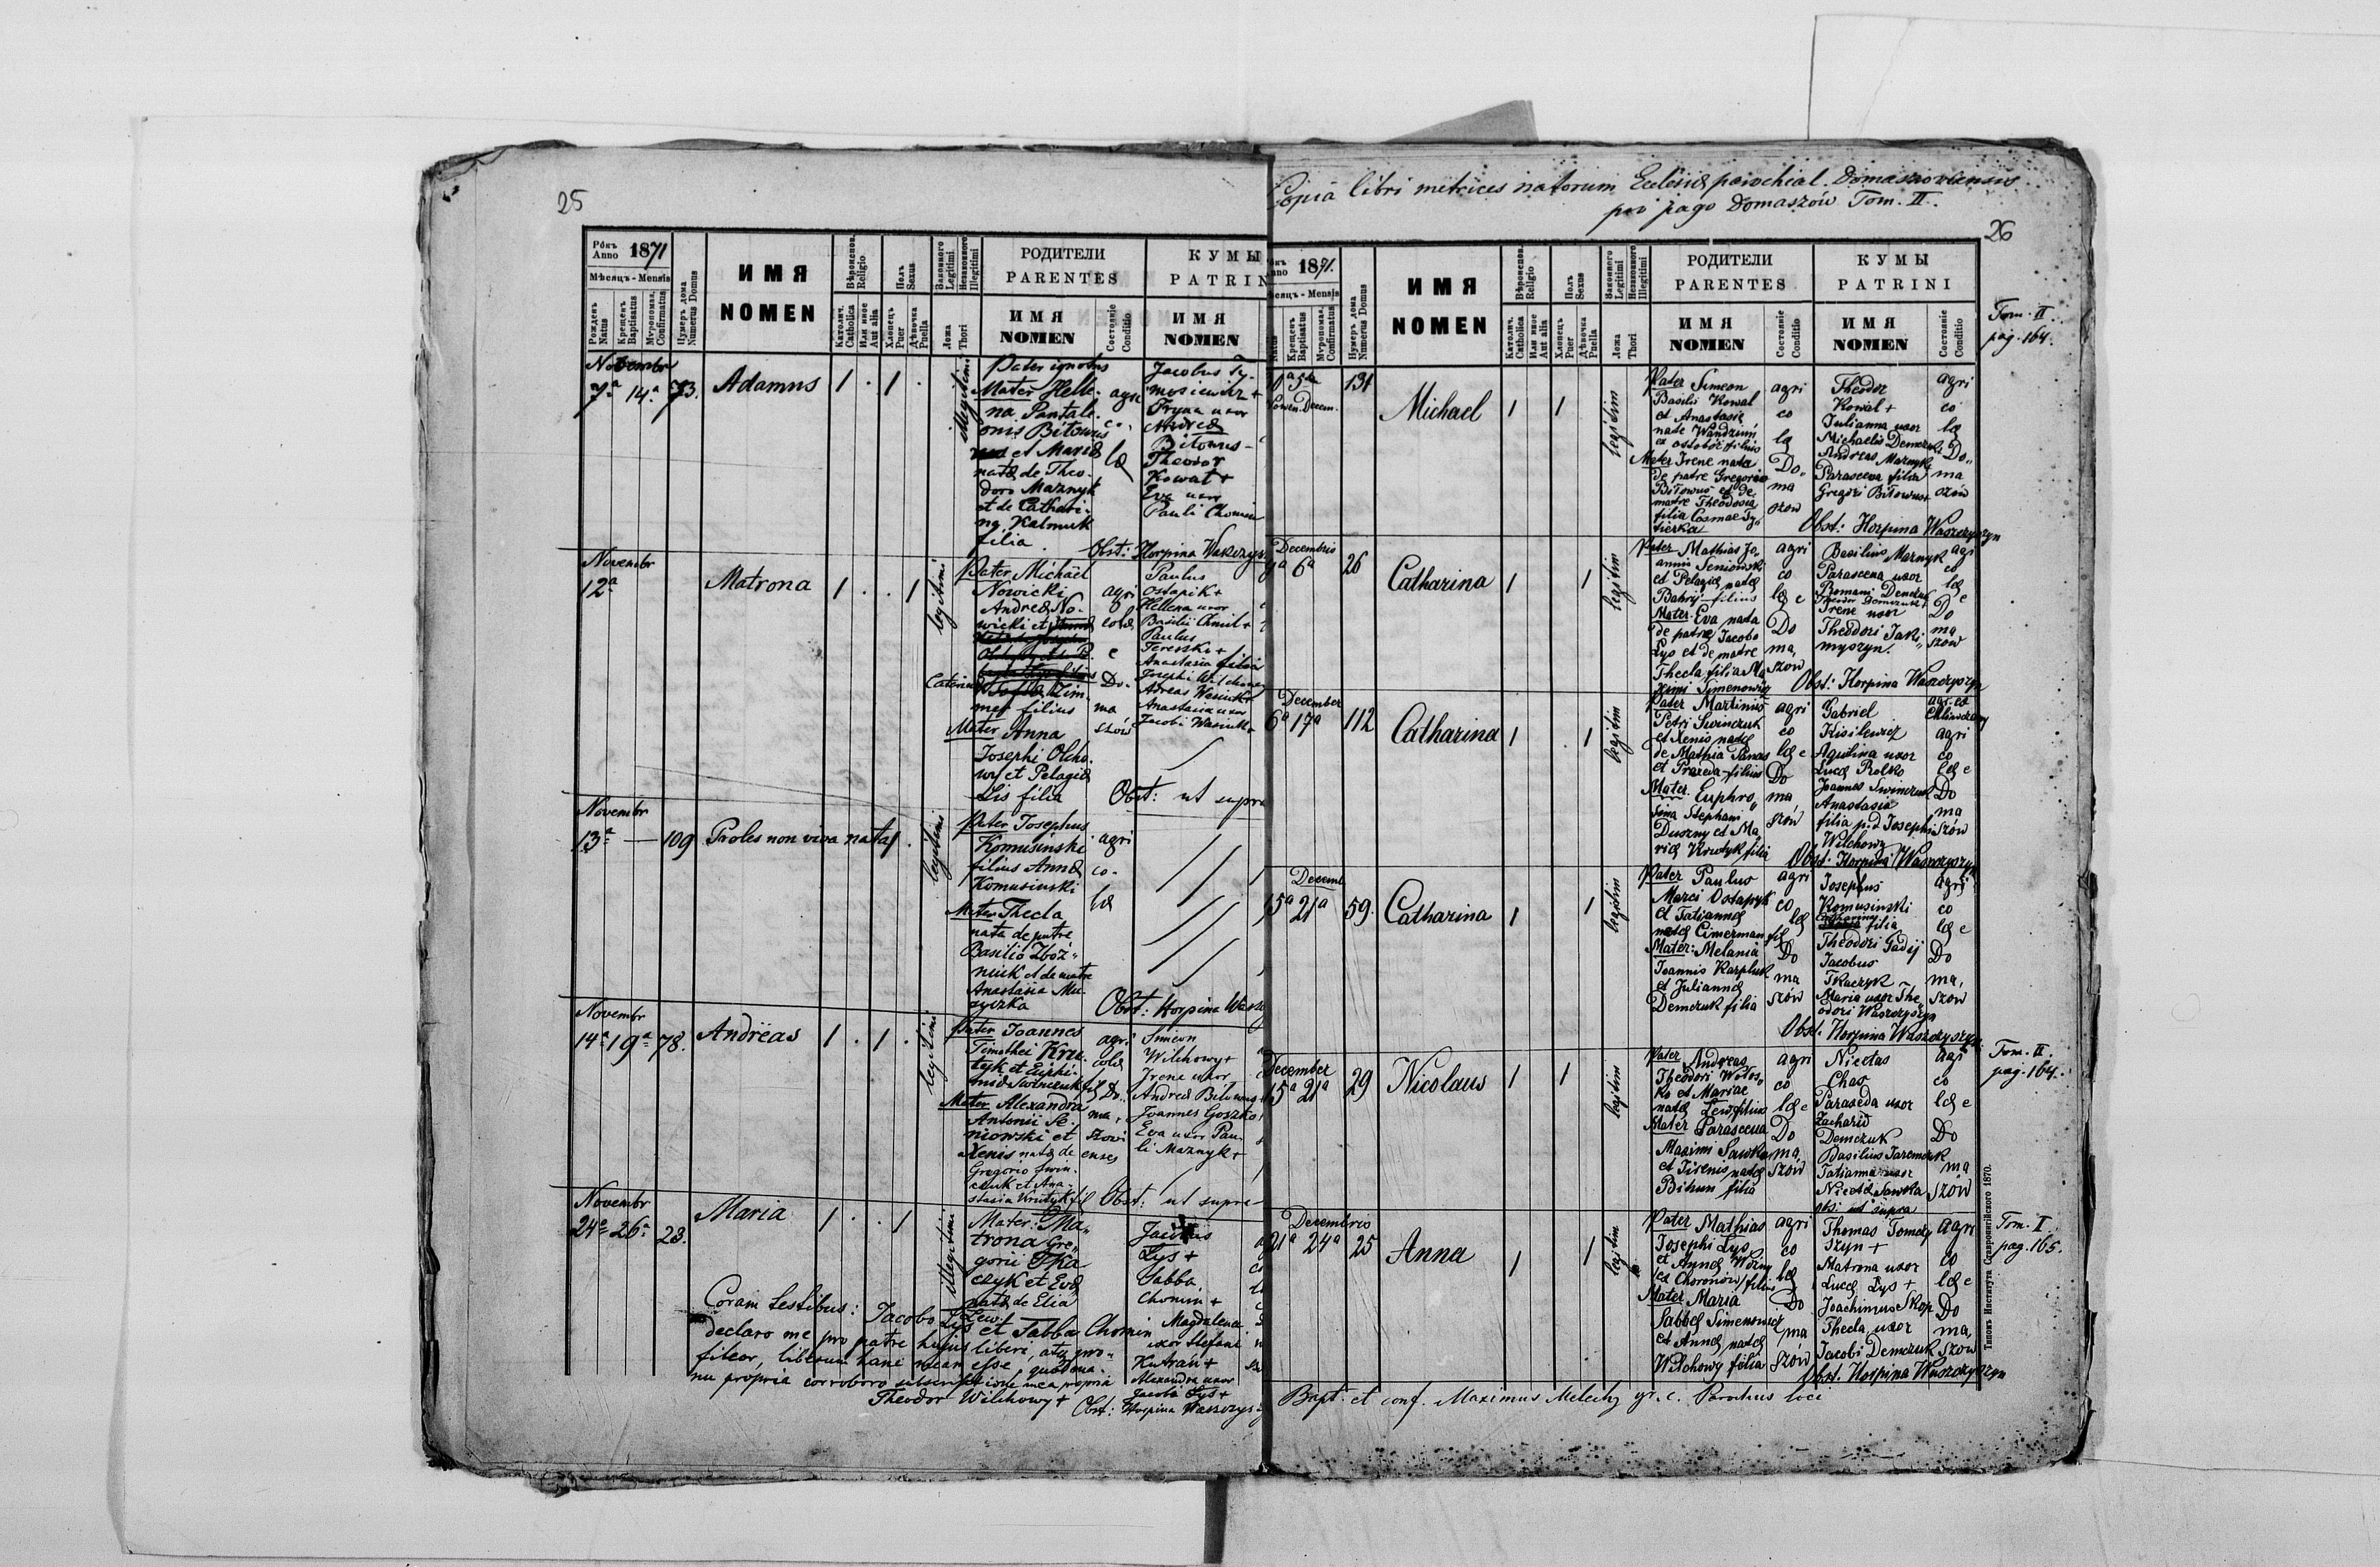 25
Рокъ Anno 1871
Мѣсяцъ - Mensis
Рожденъ Natus
Крещенъ Baptisatus
Мvропомаз. Confirmatus
Нумеръ дома Numerus Domus
ИМЯ
NOMEN
Вѣроиспов. Religio
Католич. Catholica
Или иное Aut alia
Полъ Sexus
Хлопецъ Puer
Дѣвочка Puella
Законного Legitimi
Незаконного Illegitimi
Ложа Thori
РОДИТЕЛИ
PARENTES
ИМЯ
NOMEN
Состояніе Conditio
КУМЫ
PATRIN
ИМЯ
NOMEN
Novembr
7a 14a 73. Adamus 1 . 1 .
illegitimi
Pater ignotus
Mater Helle-
na Pantale-
onis Bitowus
et Mariæ
natæ de Theo-
doro Maznyk
et de Cathari-
na Kalmuk
filia
agri
co-
læ
Jacobus Ty-
mosiewicz +
Iryna uxor
Andreæ
Bitowus -
Theodor
Kowal +
Eva uxor
Pauli Chomin
Obst: Horpina
Novembr
12a
Matrona 1 . . 1
legitimi
Pater Michäel
Nowicki
Andreæ No-
wicki et
Zim-
mer filius
Mater Anna
Josephi Olcho-
wy et Pelagiæ
Lis filia
agri
colæ
e
Do-
ma
szów
Paulus
Ostapik +
Hellena uxor
Basilii Chmil +
Paulus
Tereszko +
Anastasia filia
Josephi Wilchowy
Anastasia uxor
Jacobi Wasiuk +
Obst: ut supra
Novembr
13a — 109 Proles non viva nata 1 .
legitimi
Pater Josephus
Komusinski
filius Annæ
Komusinski
Mater Thecla
nata de patre
Basilio
et de matre
Anastasia Mu-
zyczka
agri
co-
læ
Obst: Horpina
Novembr
14a 19a 78. Andrëas 1 . 1 .
legitimi
Pater Joannes
Timothei Kru-
tyk et Euphi-
Mater Alexandra
Antonii Se-
niowski et
Xeniæ natæ de
Gregorio Swin-
czuk et Ana-
stasia Krutyk fil
agri
colæ
Do-
ma-
szowi
enses
Simeon
Wilchowy +
Irene uxor
Andreæ Bitowus +
Joannes Goszko
Eva uxor Pau-
li Maznyk +
Obst: ut supra
Novembr
24a 26a 23. Maria 1 . . 1
illegitimi
Mater: Ma-
trona Gre-
gorii Tka-
czyk et Evæ
natæ de Elia
Lew.
Jacobus
Lys +
Sabba
Chomin +
Magdalena
uxor Stefani
Kutran +
Alexandra uxor
Jacobi Lys +
Coram testibus: Jacobo Lys et Sabba Chomin
declaro me pro patre hujus liberi, atq pro-
fiteor, liberum hanc meam esse, quod ma-
nu propria corroboro subscriptione mea propria
Theodor Wilchowy +
Obst: Horpina
Copia libri metrices natorum Ecclesiæ parochial. Domaszoviensis
pro pago Domaszów Tom. II.
26
1871.
Мѣсяцъ - Mensis
Natus
Крещенъ Baptisatus
Мvропомаз. Confirmatus
Нумеръ дома Numerus Domus
ИМЯ
NOMEN
Вѣроиспов. Religio
Католич. Catholica
Или иное Aut alia
Полъ Sexus
Хлопецъ Puer
Дѣвочка Puella
Законного Legitimi
Незаконного Illegitimi
Ложа Thori
РОДИТЕЛИ
PARENTES
ИМЯ
NOMEN
Состояніе Conditio
КУМЫ
PATRINI
ИМЯ
NOMEN
Состояніе Conditio
Tom. II
pag. 164.
5ta
Decem.
131 Michael 1 1
legitim
Pater Simeon
Basilii Kowal
et Anastasiæ
natæ
filius
Mater Irene nata
de patre Gregorio
Bitowus et de
matre Theodosia
filia Cosmae
agri
co
læ
Do-
ma
szow
Theodor
Kowal +
Julianna uxor
Michaelis Demczuk
Andreas Maznyk
Parasceva filia
Gregorii Bitowus +
agri
co
læ
Do-
ma
szów
Obst: Horpina Waszczyszyn
Decembris
6a 26 Catharina 1 1
legitim
Pater Mathias Jo-
annis Seniowski
et Pelagiæ natæ
Babrij filius
Mater Eva nata
de patre Jacobo
Lys et de matre
Thecla filia Ma
ximi Simenowicz
agri
co
læ e
Do
ma,
szow
Basilius Maznyk
Parasceva uxor
Romani Demczuk
Irene uxor
Theodori Jaki-
myszyn.
agri
co
læ e
Do
ma
szow
Obst: Horpina Waszczyszyn
December
6a 17a 112 Catharina 1 . 1
legitim
Pater Martinus
Petri Swinczuk
et Xeniæ natæ
de Mathia Panas
et Praxeda filius
Mater. Euphro-
sina Stephani
Duszny et Ma
riæ Krutyk filia
agri
co
læ e
Do
ma,
szów
Gabriel
Kisilewicz
Aquilina uxor
Lucæ Rolko
Joannes Swinczuk
Anastasia
filia p.d. Josephi
Wilchowy
agri
co
læ e
Do
ma
szów
Obst: Horpina Waszczyszyn
Decemb
15a 21a 59. Catharina 1 1
legitim
Pater Paulus
Marci Ostapyk
et Tatiannæ
natæ Cimerman fil
Mater: Melania
Joannis Karpluk
et Juliannæ
Demczuk filia
agri
co
læ
Do
ma
szów
Josephus
Komusinski
filia
Theodori Gadij
Jacobus
Tkaczyk
Maria uxor The-
odori Waszczyszyn
agri
co
læ e
Do
ma,
szów
Obst: Horpina Waszczyszyn.
December
15a 21a 29 Nicolaus 1 1
legitim
Pater Andreas
Theodori Wolos-
ko et Mariae
natæ Lew filius
Mater Parasceva
Maximi Sawka
et Irenis natæ
Bihun filia
agri
co
læ e
Do
ma,
szów
Nicetas
Chas
Paraseda uxor
Zachariæ
Demczuk
Basilius Jaremczuk
Tatianna uxor
Nicetæ Sawka
obst ut supra
agri
co
læ e
Do
ma
szów
Tom. II.
pag. 164.
Decembris
21a 24a 25 Anna 1 1
legitim
Pater Mathias
Josephi Lys
et Annæ Wozny
filius
Mater Maria
Sabbæ Simenowicz
et Annæ natæ
Wilchowy filia
agri
co
læ
Do
ma
szów
Thomas Tomczy
szyn +
Matrona uxor
Lucæ Lys +
Joachimus Skop
Thecla uxor
Jacobi Demczuk
agri
co
læ e
Do
ma,
szow
Obst: Horpina Waszczyszyn
Tom. II
pag. 165.
Bapt. et conf. Maximus Melech gr. c. Parochus loci
Типомъ Института Ставропигійского 1870.